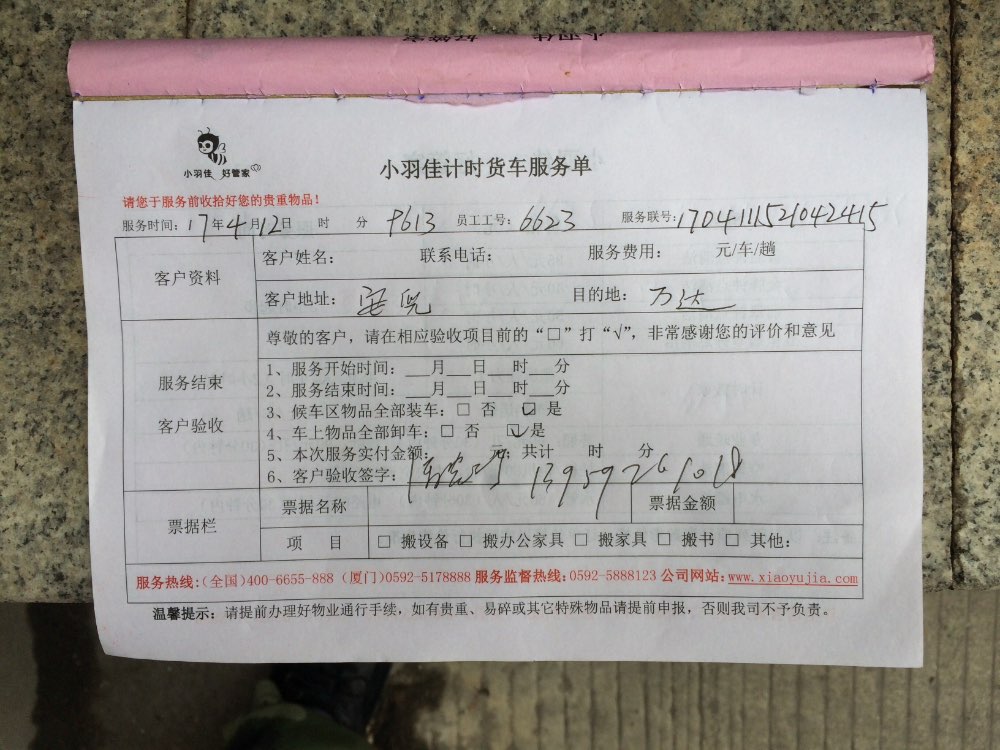 小羽佳 好管家
小羽佳计时货车服务单
请您于服务前收拾好您的贵重物品!
服务时间: 17年4月12日 时 分 9613 员工工号: 6623 服务联号: 1704111521042415
客户资料
客户姓名: 联系电话: 服务费用: 元/车/趟
客户地址: 目的地: 万达
服务结束
客户验收
尊敬的客户，请在相应验收项目前的“□”打“√”，非常感谢您的评价和意见
1、服务开始时间: ___月___日___时___分
2、服务结束时间: ___月___日___时___分
3、候车区物品全部装车: □ 否 ☑ 是
4、车上物品全部卸车: □ 否 ☑ 是
5、本次服务实付金额: 元; 共计 时 分
6、客户验收签字: 13959261018
票据栏
票据名称 票据金额
项 目 □ 搬设备 □ 搬办公家具 □ 搬家具 □ 搬书 □ 其他:
服务热线:(全国)400-6655-888 (厦门)0592-5178888 服务监督热线:0592-5888123 公司网站:www.xiaoyujia.com
温馨提示: 请提前办理好物业通行手续, 如有贵重、易碎或其它特殊物品请提前申报, 否则我司不予负责。